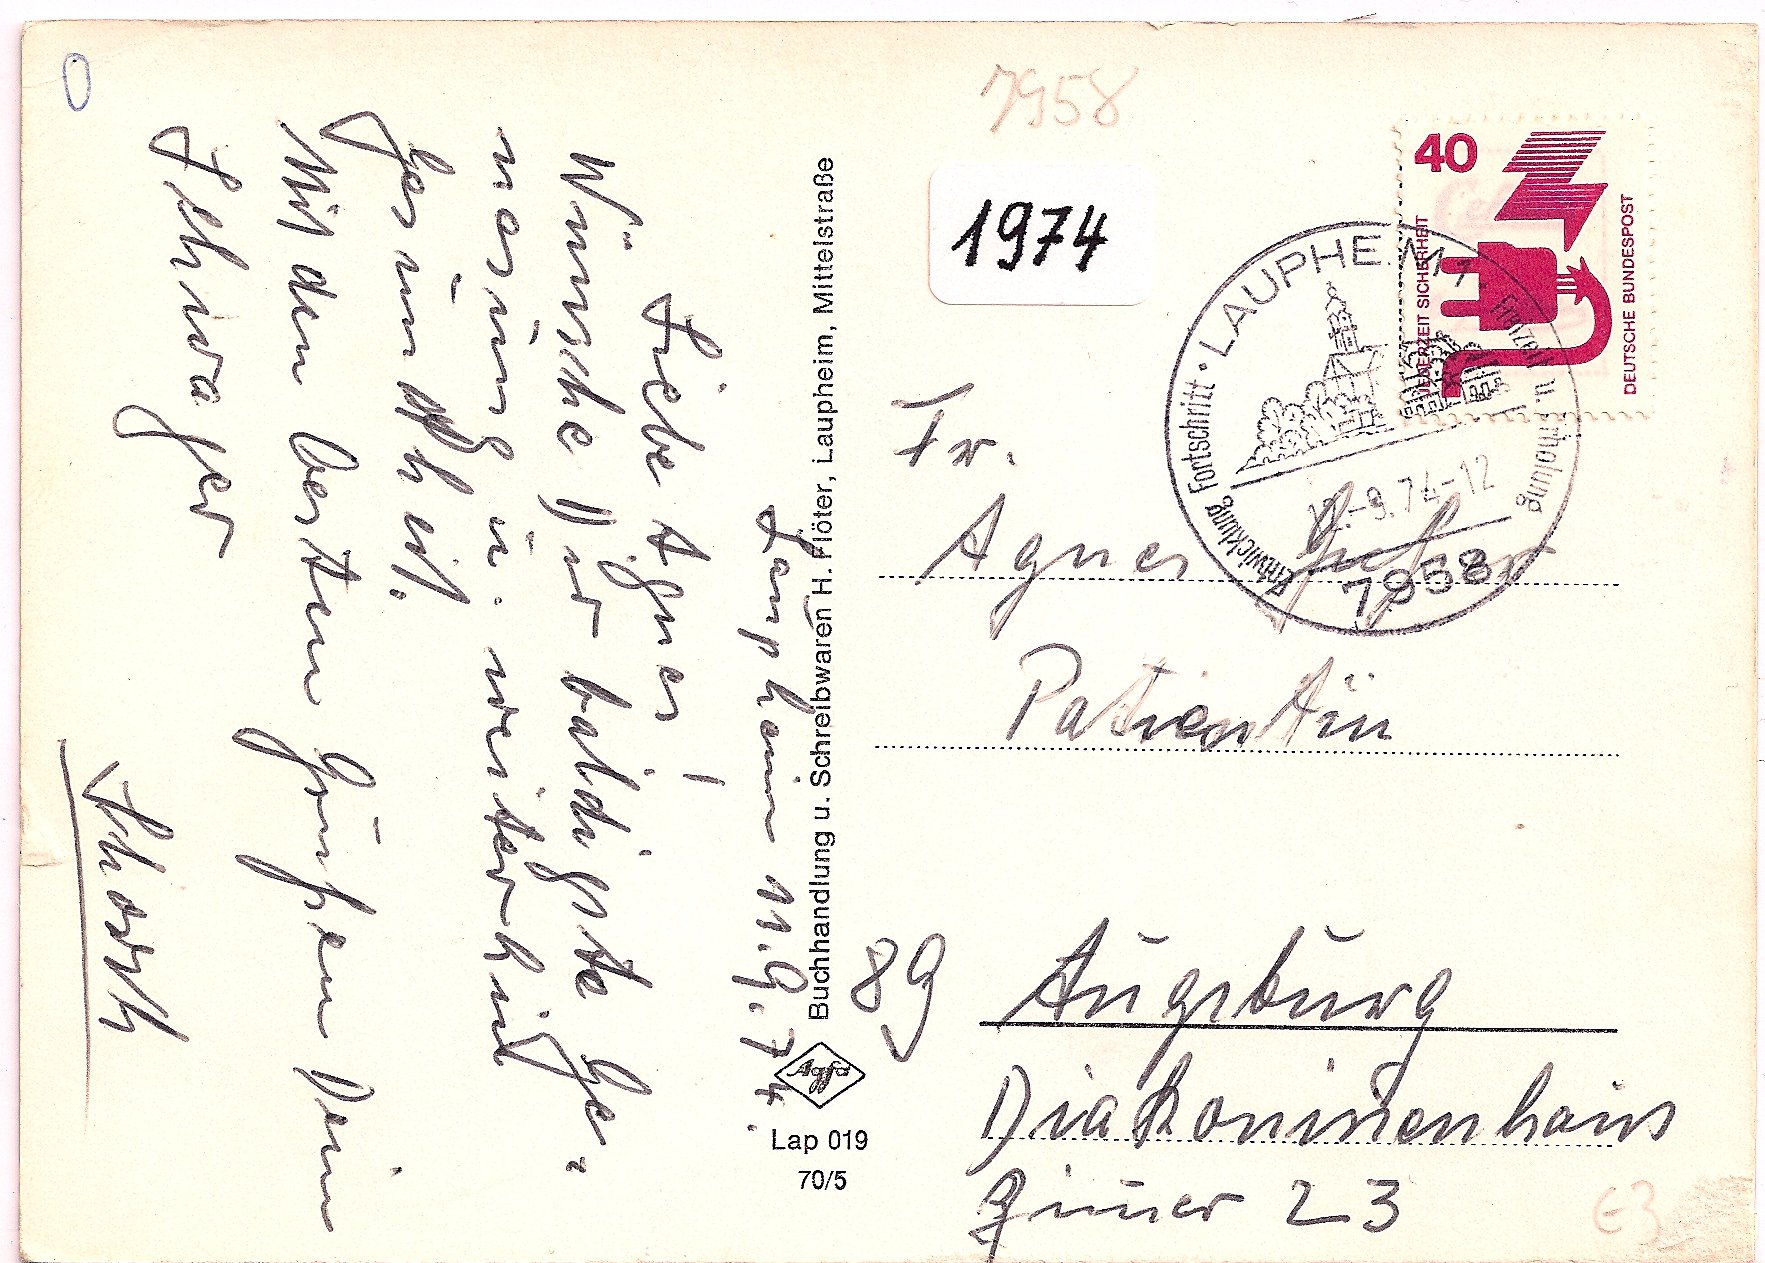 Laupheim 11.9.74.
Liebe Agnes!
Wünsche Dir baldigste Ge-
nesung u. weiterhin
Gesundheit.
Mit den besten Grüßen Dein
Schwager
Buchhandlung u. Schreibwaren H. Flöter, Laupheim, Mittelstraße
Agfa
Lap 019
70/5
7958
1974
40
JEDERZEIT SICHERHEIT
DEUTSCHE BUNDESPOST
LAUPHEIM 1
Freizeit u. Erholung
Entwicklung, Fortschritt
-9.74-12
7958
Fr.
Agnes
Patientin
89 Augsburg
Diakonissenhaus
Zimmer 23
E3